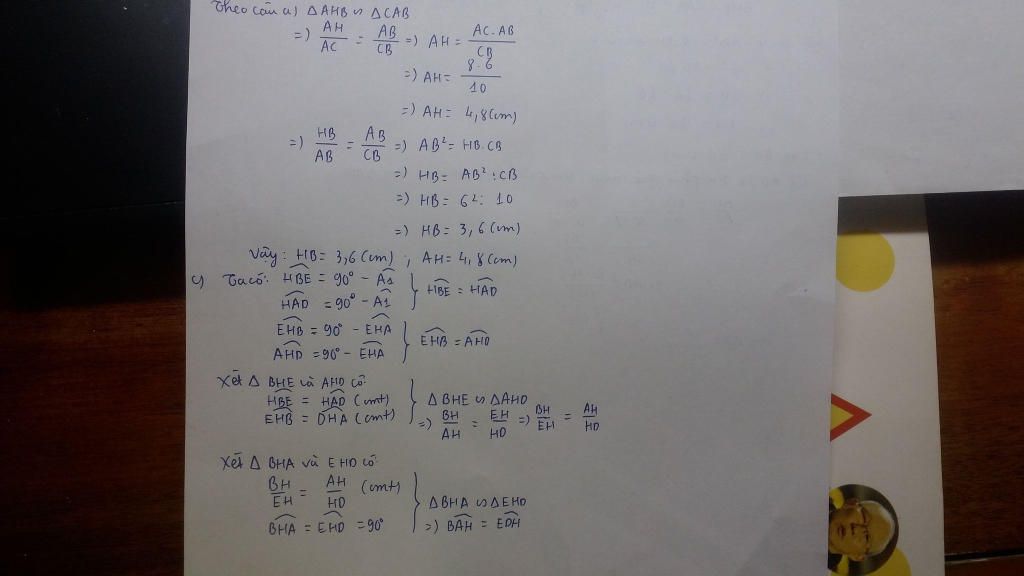 Theo câu a) △AHB ∽ △CAB
=) AH/AC = AB/CB =) AH = AC.AB/CB
=) AH = 8.6/10
=) AH = 4,8(cm)
=) HB/AB = AB/CB =) AB² = HB.CB
=) HB = AB² : CB
=) HB = 6² : 10
=) HB = 3,6(cm)
Vậy: HB = 3,6(cm) ; AH = 4,8(cm)
c) Ta có: HBE = 90° - A1 } HBE = HAD
HAD = 90° - A1
EHB = 90° - EHA } EHB = AHD
AHD = 90° - EHA
Xét △ BHE và AHD có:
HBE = HAD (cmt) } △BHE ∽ △AHD
EHB = DHA (cmt) =) BH/AH = EH/HD =) BH/EH = AH/HD
Xét △ BHA và EHD có:
BH/EH = AH/HD (cmt) } △BHA ∽ △EHD
BHA = EHD = 90° =) BAH = EDH